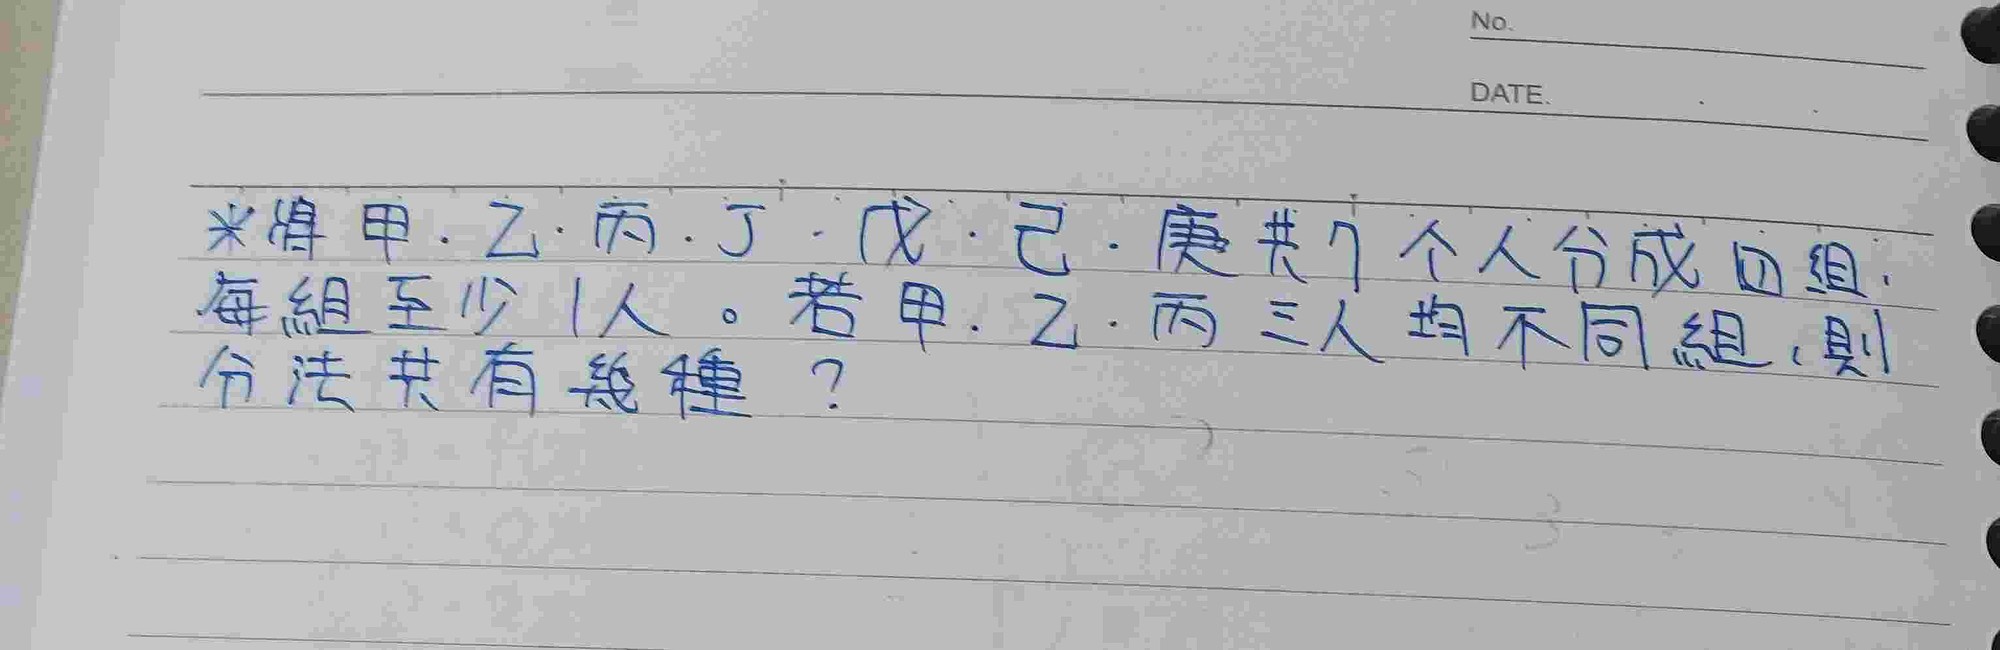 No.
DATE.
※將甲.乙.丙.丁.戊.己.庚共7个人分成四組,
每組至少1人。若甲.乙.丙三人均不同組,則
分法共有幾種?